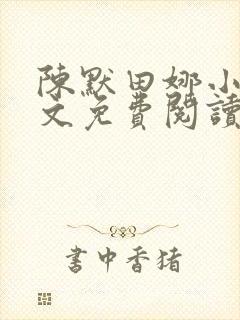 陳默田娜小
文免費閱讀
書中香猪